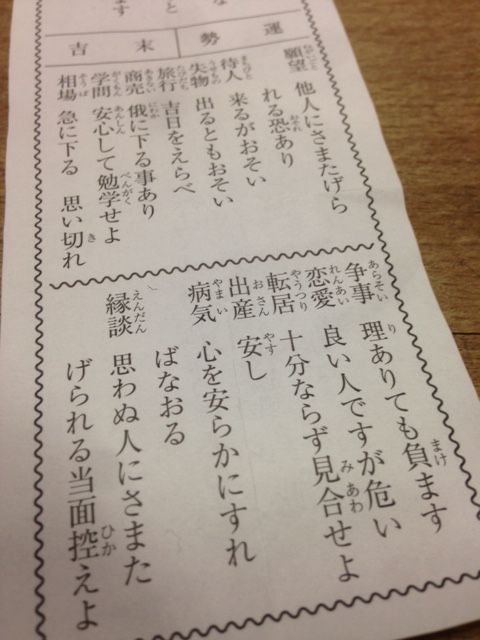 な
と
ます
運勢 末吉
願望 他人にさまたげら
れる恐あり
待人 来るがおそい
失物 出るともおそい
旅行 吉日をえらべ
商売 俄に下る事あり
学問 安心して勉学せよ
相場 急に下る 思い切れ
争事 理ありても負ます
恋愛 良い人ですが危い
転居 十分ならず見合せよ
出産 安し
病気 心を安らかにすれ
ばなおる
縁談 思わぬ人にさまた
げられる当面控えよ